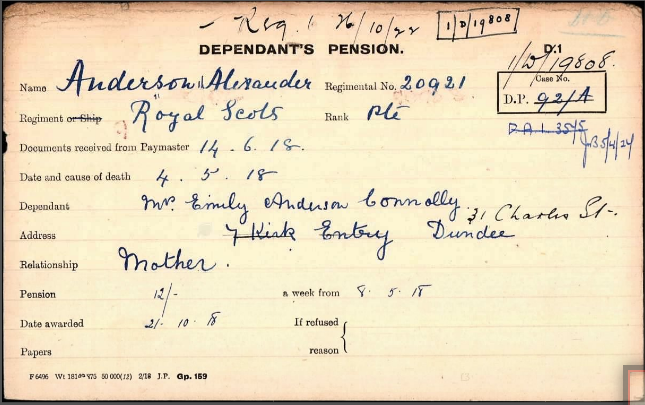 Reg. 26/10/22
1/D/19808
DEPENDANT'S PENSION.
D.1
1/D/19808.
Name Anderson Alexander Regimental No. 20921
Case No.
D.P. 92/A
Regiment or Ship Royal Scots Rank Pte
Documents received from Paymaster 14.6.18.
5/4/24
Date and cause of death 4.5.18
Dependant Mrs. Emily Anderson Connolly
31 Charles St.
Address 7 Kirk Entry Dundee
Relationship Mother.
Pension 12/- a week from 8.5.18
Date awarded 21.10.18 If refused
Papers reason
F 6496 Wt 50 000(12) 2/18 J.P. Gp. 159